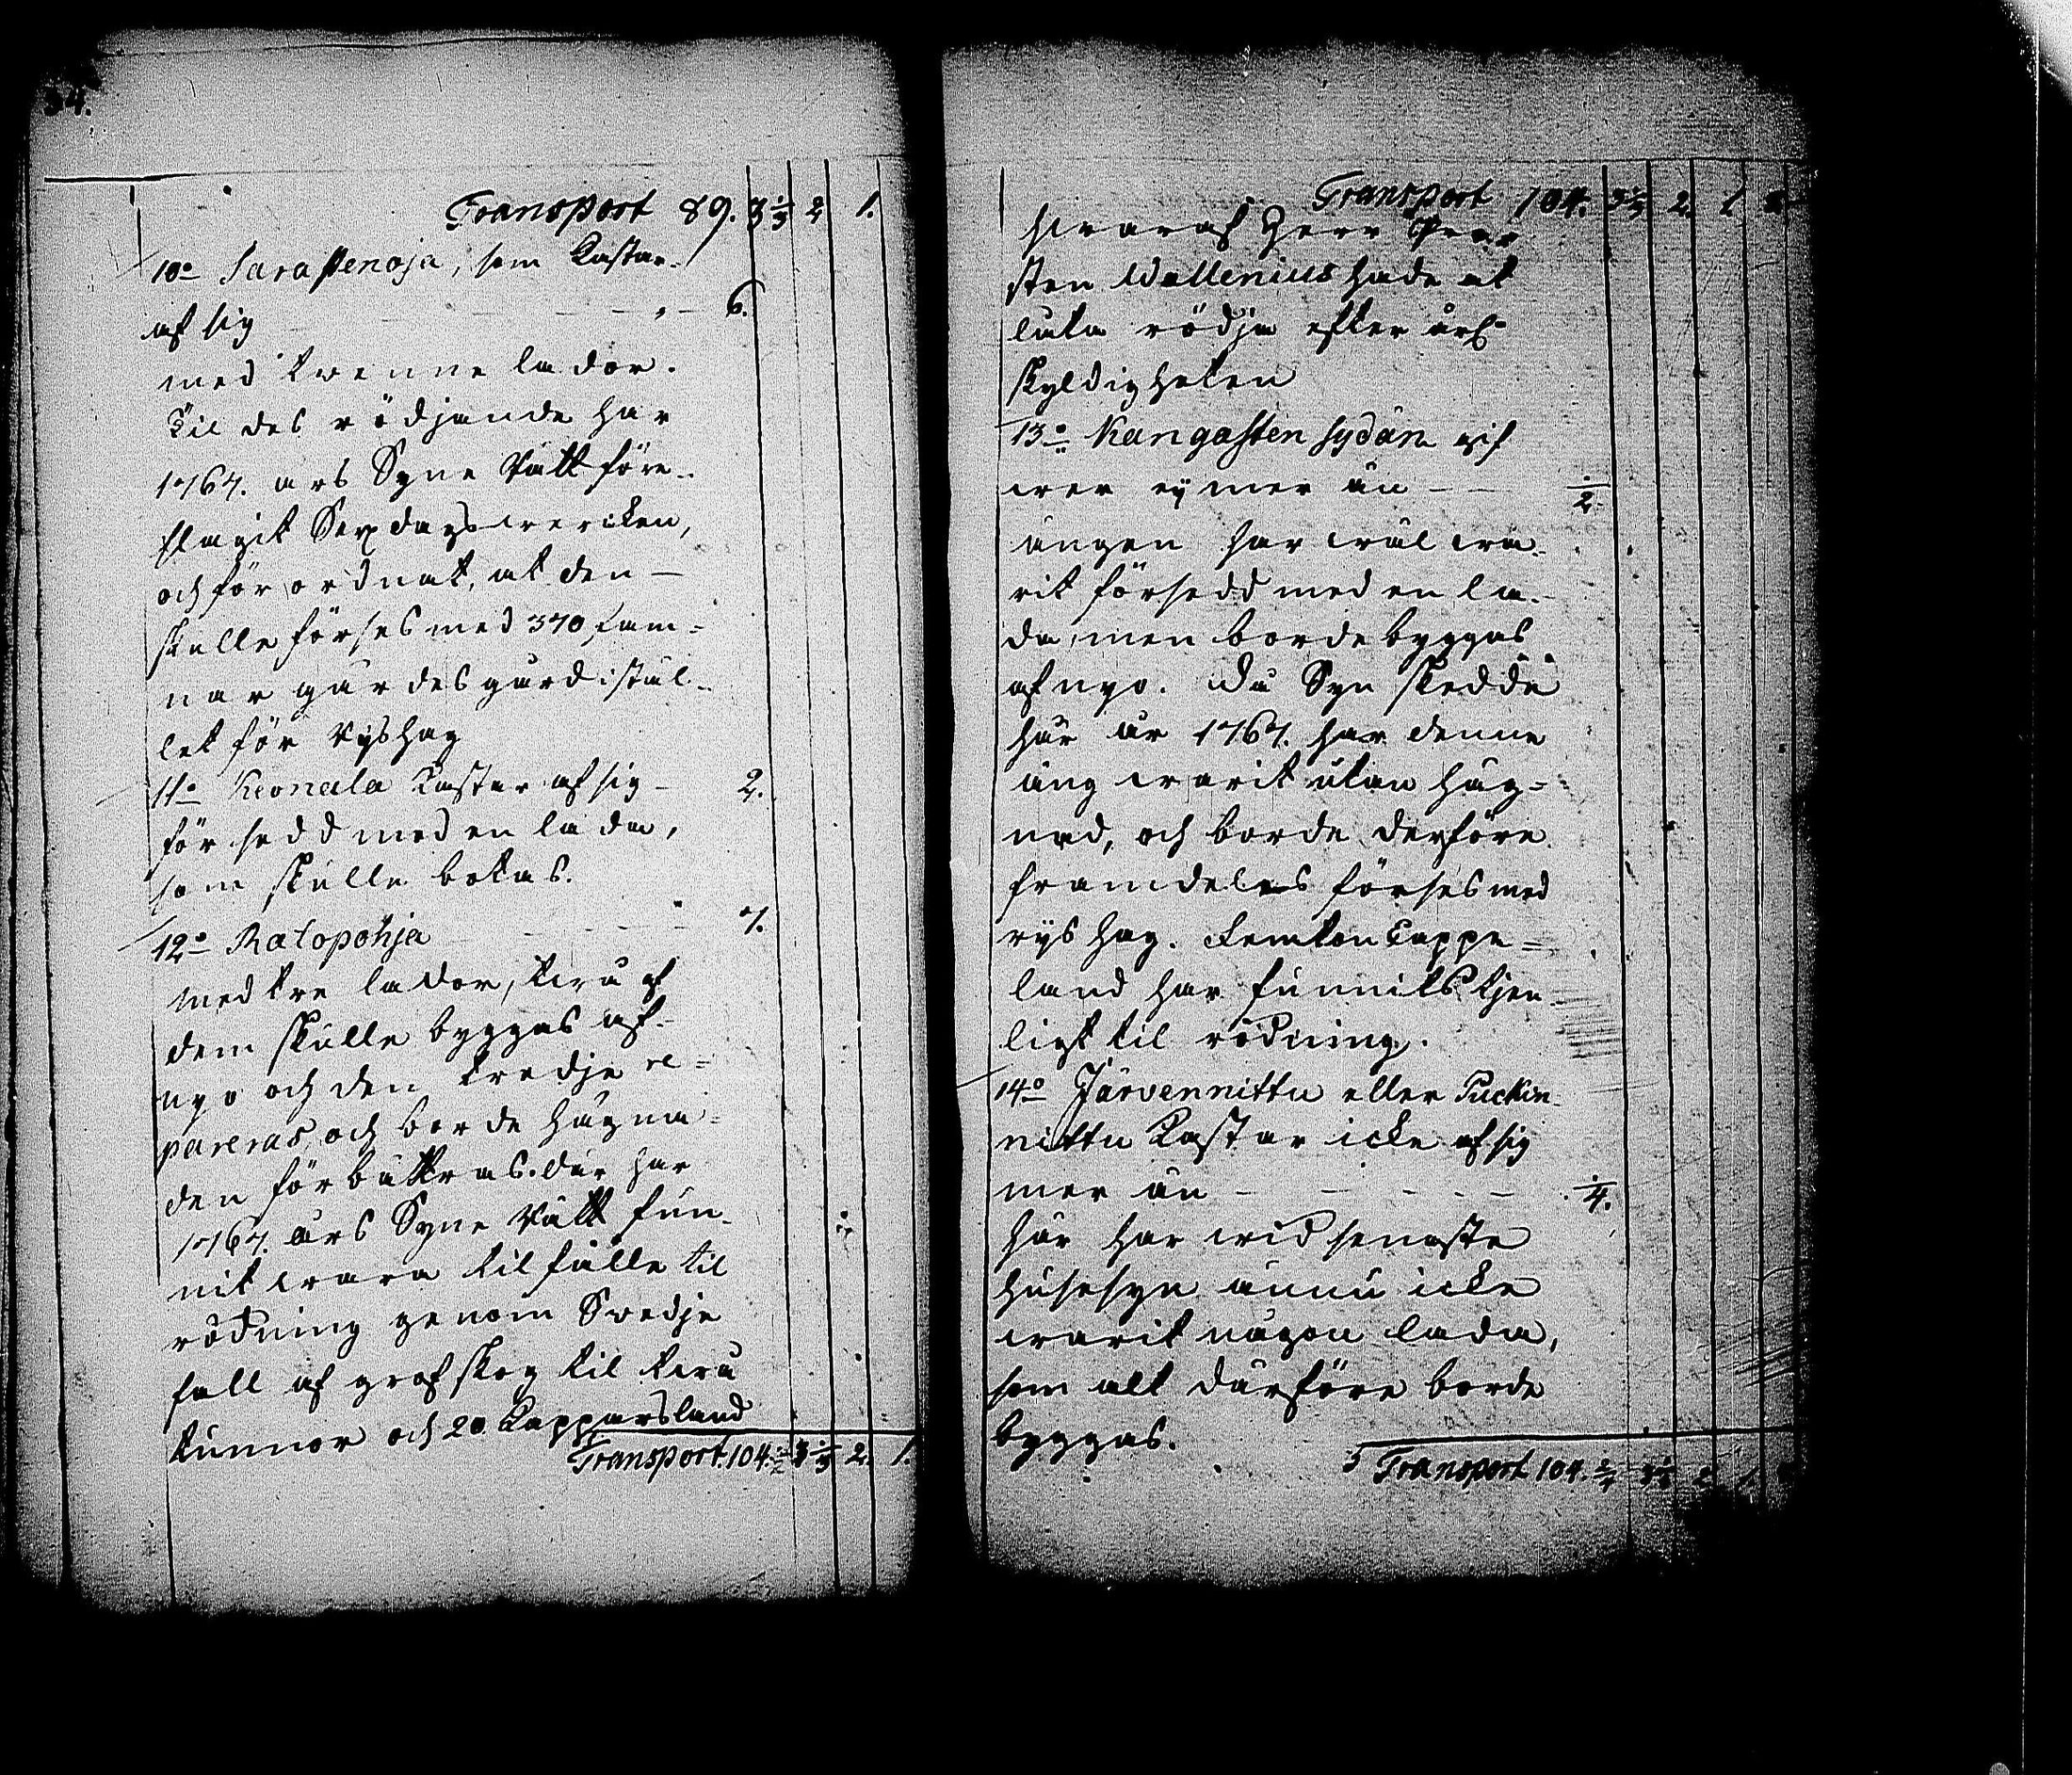 34.
Transport 89. 3 1/3 2 1.
10:o Sarassenoja, som kastar
af sig - - - 6.
med tvenne lador.
Til des rödjande har
1767. års Syne Rätt före-
slagit Sex dagsvercken,
och förordnat, at den
skulle förses med 370 fam=
nar gärdesgård i stäl-
let för Ryshag
11:o Keonala kastar af sig - 2.
försedd med en lada,
som skulle botas.
12:o Ratopohja - - - 7.
med tre lador, tvu af
dem skulle byggas af
nyo och den tredje re=
pareras, och borde hägna=
den förbättras. Där har
1767. års Syne Rätt fun-
nit vara tilfälle til
rödning genom Svedje
fall af graf skog til tvu
tunnor och 20 Kapparsland
Transport. 104. 1/2 3 1/3 2. 1.
Transport 104. 3 1/3 2. 1.
hvaraf Herr
sten Wallenius hade at
låta rödja efter årl:
skyldigheten
13:o Kangasten sydän gif
ver ej mer än - - 1/2.
ängen har väl va-
rit försedd med en la-
da, men borde byggas
af nyo. Då Syn skedde
här år 1767. har denne
äng varit utan häg=
nad, och borde derföre
framdeles förses med
rys hag. Femton Cappe=
land har funnits tjen-
ligt til rödning.
14:o Järvennittu eller Puckin-
nittu kastar icke af sig
mer än - - - - 1/4.
här har vid senaste
husesyn ännu icke
varit någon lada,
som alt därföre borde
byggas.
Transport 104. 3/4 3 1/3 2 1